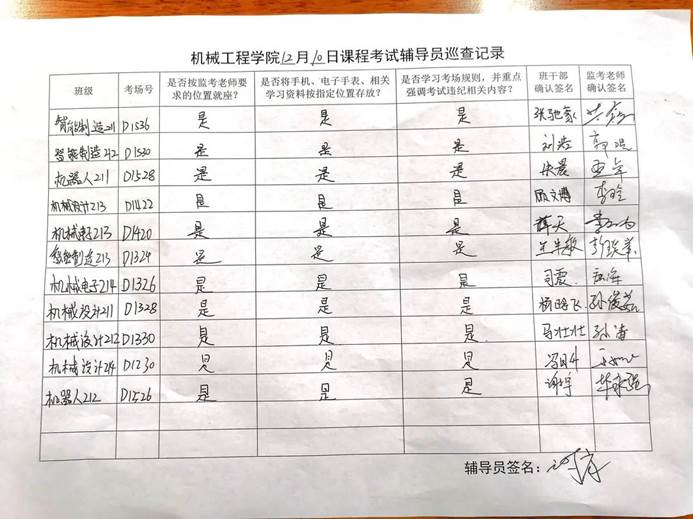 机械工程学院12月10日课程考试辅导员巡查记录
班级 考场号 是否按监考老师要求的位置就座? 是否将手机、电子手表、相关学习资料按指定位置存放? 是否学习考场规则,并重点强调考试违纪相关内容? 班干部确认签名 监考老师确认签名
智能制造211 D1536 是 是 是
智能制造212 D1530 是 是 是 刘岩
机器人211 D1528 是 是 是
机械设计213 D1422 是 是 是 顾文博
机械电子213 D1420 是 是 是 薛天
智能制造213 D1324 是 是 是
机械电子214 D1326 是 是 是 司震
机械设计211 D1328 是 是 是
机械设计212 D1330 是 是 是 马壮壮 孙海
机械设计214 D1230 是 是 是
机器人212 D1526 是 是 是
辅导员签名: